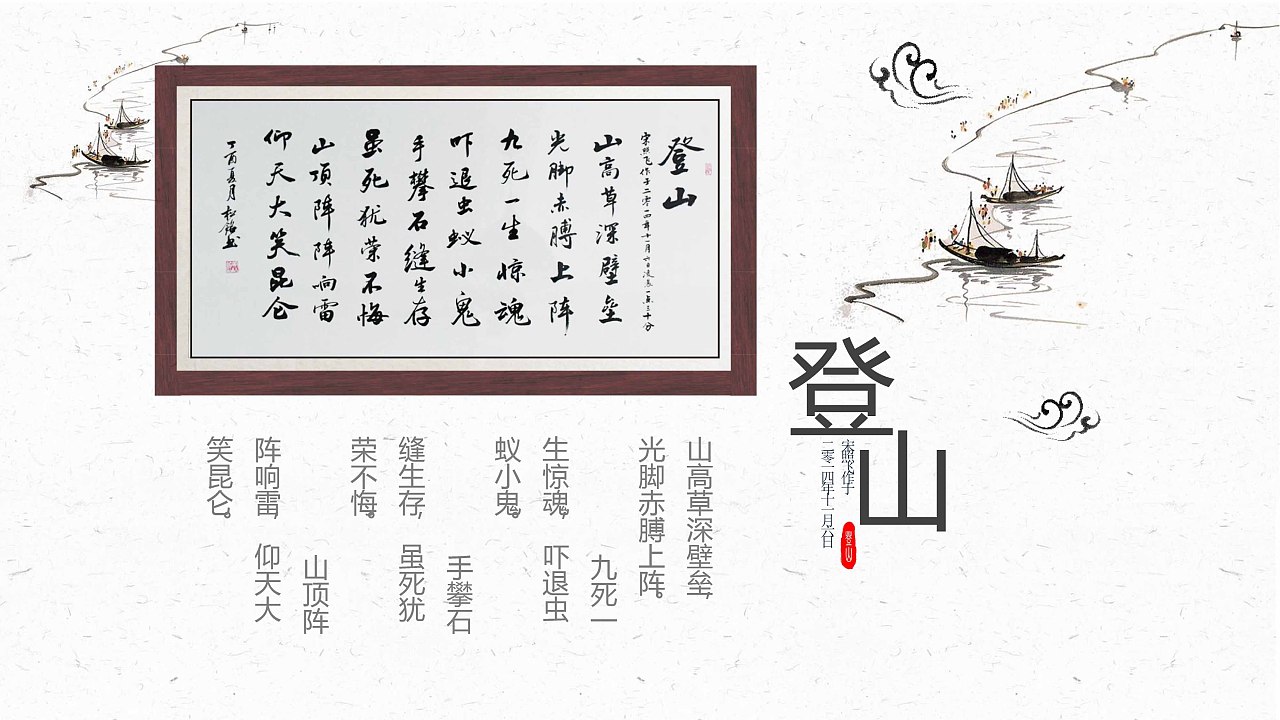 登山
宋照飞作于二零一四年十一月六日凌晨一点三十分
山高草深壁垒
光脚赤膊上阵
九死一生惊魂
吓退虫蚁小鬼
手攀石缝生存
虽死犹荣不悔
山顶阵阵响雷
仰天大笑昆仑
丁酉夏月
登山
宋照飞作于
二零一四年十一月六日
登山
山高草深壁垒,
光脚赤膊上阵。
九死一
生惊魂, 吓退虫
蚁小鬼。
手攀石
缝生存, 虽死犹
荣不悔。
山顶阵
阵响雷, 仰天大
笑昆仑。